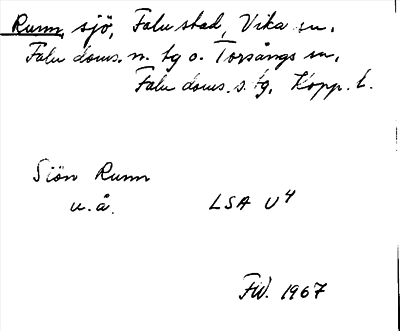 Runn, sjö, Falu stad, Vika sn,
Falu doms. n. tg o. Torsångs sn,
Falu doms. s. tg, Kopp. l.
Siön Runn
u.å. LSA U4
FW. 1967